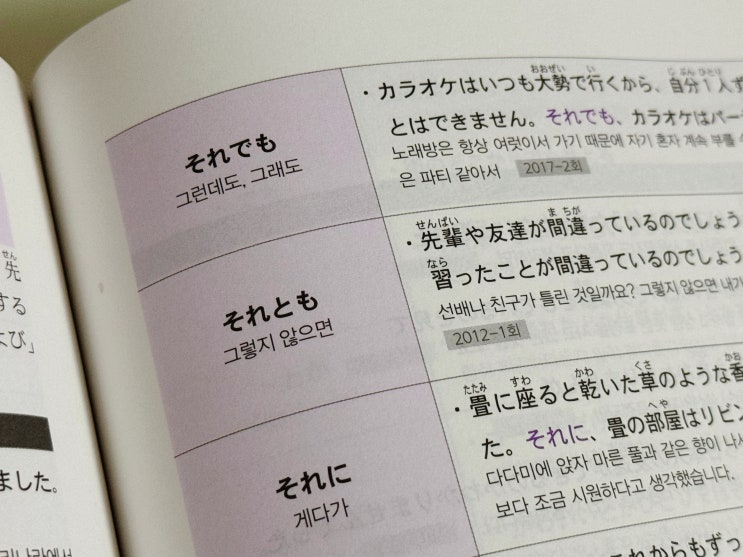 せん
先
する
よび」
ました。
それでも
그런데도, 그래도
おおぜい い じ ぶん ひとり
・カラオケはいつも大勢で行くから、自分1人
とはできません。それでも、カラオケはパー
노래방은 항상 여럿이서 가기 때문에 자기 혼자 계속 부를
은 파티 같아서 2017-2회
それとも
그렇지 않으면
せんぱい ま ちが
・先輩や友達が間違っているのでしょう
なら
習ったことが間違っているのでしょう
선배나 친구가 틀린 것일까요? 그렇지 않으면 내가
2012-1회
それに
게다가
たたみ すわ かわ くさ かお
・畳に座ると乾いた草のような香
へや
た。それに、畳の部屋はリビン
다다미에 앉자 마른 풀과 같은 향이 나서
보다 조금 시원하다고 생각했습니다.
これからもずっ